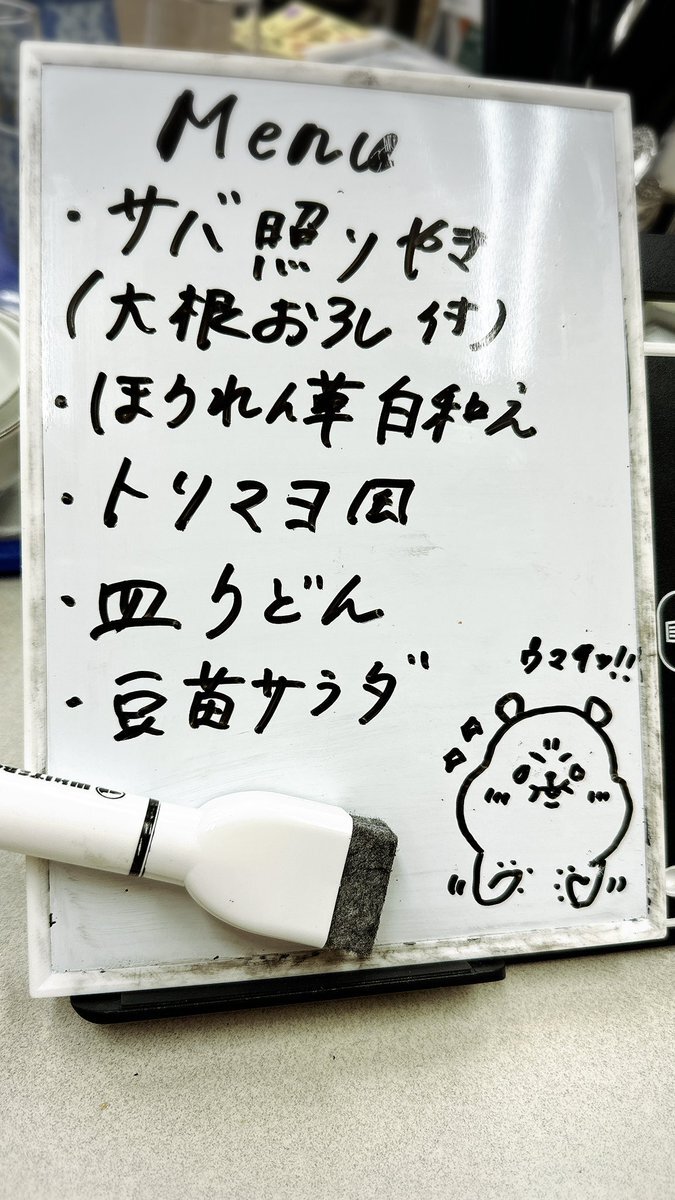 Menu
・サバ照りやき
(大根おろし付)
・ほうれん草白和え
・トリマヨ図
・皿うどん
・豆苗サラダ
ウマイッ!!